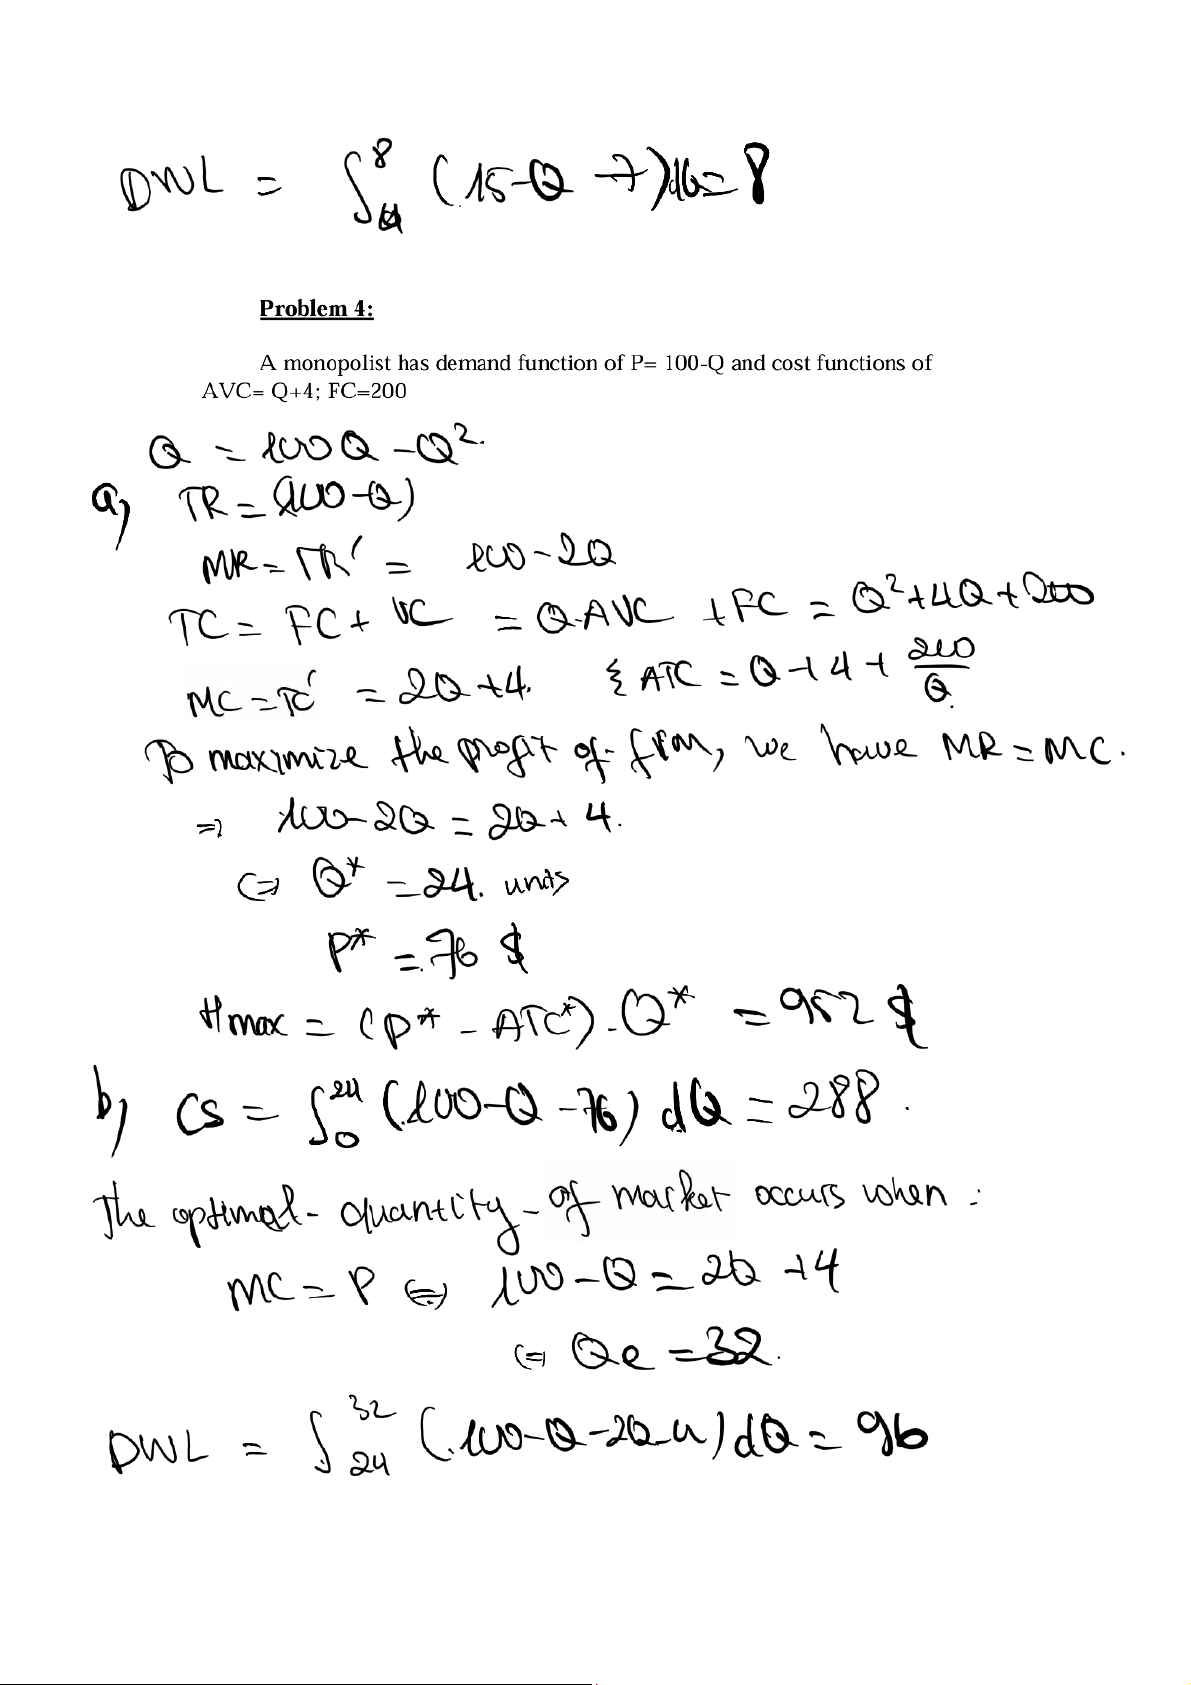 DWL = ∫₄⁸ (15-Q-7)dQ = 8
Problem 4:
A monopolist has demand function of P= 100-Q and cost functions of
AVC= Q+4; FC=200
Q = 100Q - Q².
a) TR = (100-Q)
MR = TR' = 100-2Q
TC = FC + VC = Q.AVC + FC = Q²+4Q+200
MC = TC' = 2Q+4. { ATC = Q+4+ 200/Q.
To maximize the profit of firm, we have MR = MC.
=> 100-2Q = 2Q+4.
<=> Q* = 24. units
P* = 76 $
πmax = (P* - ATC*).Q* = 952 $
b) CS = ∫₀²⁴ (100-Q-76) dQ = 288.
The optimal quantity of market occurs when:
MC = P <=> 100-Q = 2Q+4
<=> Qe = 32.
DWL = ∫₂₄³² (100-Q-2Q-4)dQ = 96